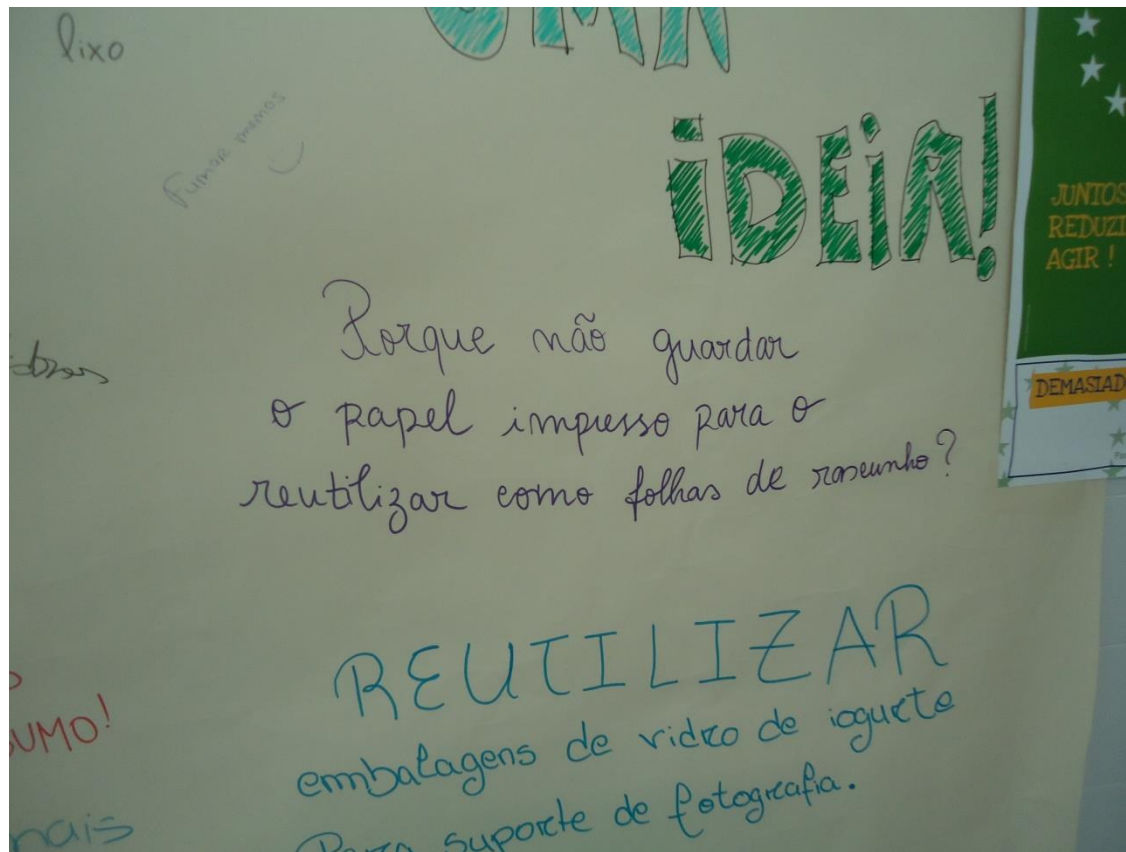 lixo
Fumar menos
UMA
iDEiA!
JUNTOS
REDUZI
AGIR !
DEMASIAD
Porque não guardar
o papel impresso para o
reutilizar como folhas de rascunho?
REUTILIZAR
embalagens de vidro de iogurte
Para suporte de fotografia.
SUMO!
mais